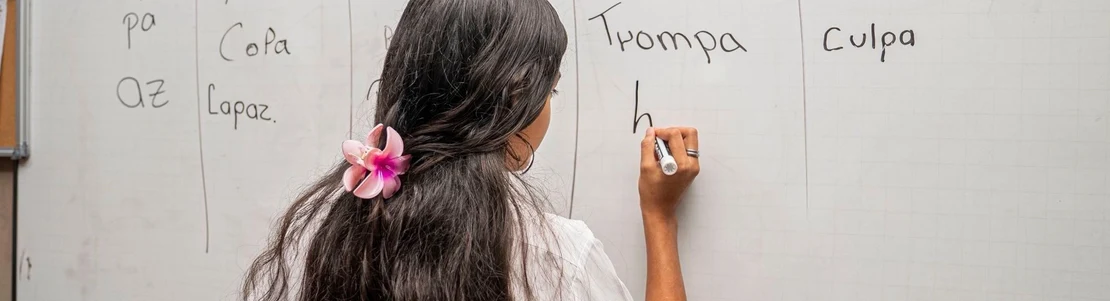 pa
Copa
Trompa
Culpa
az
Lapaz.
h